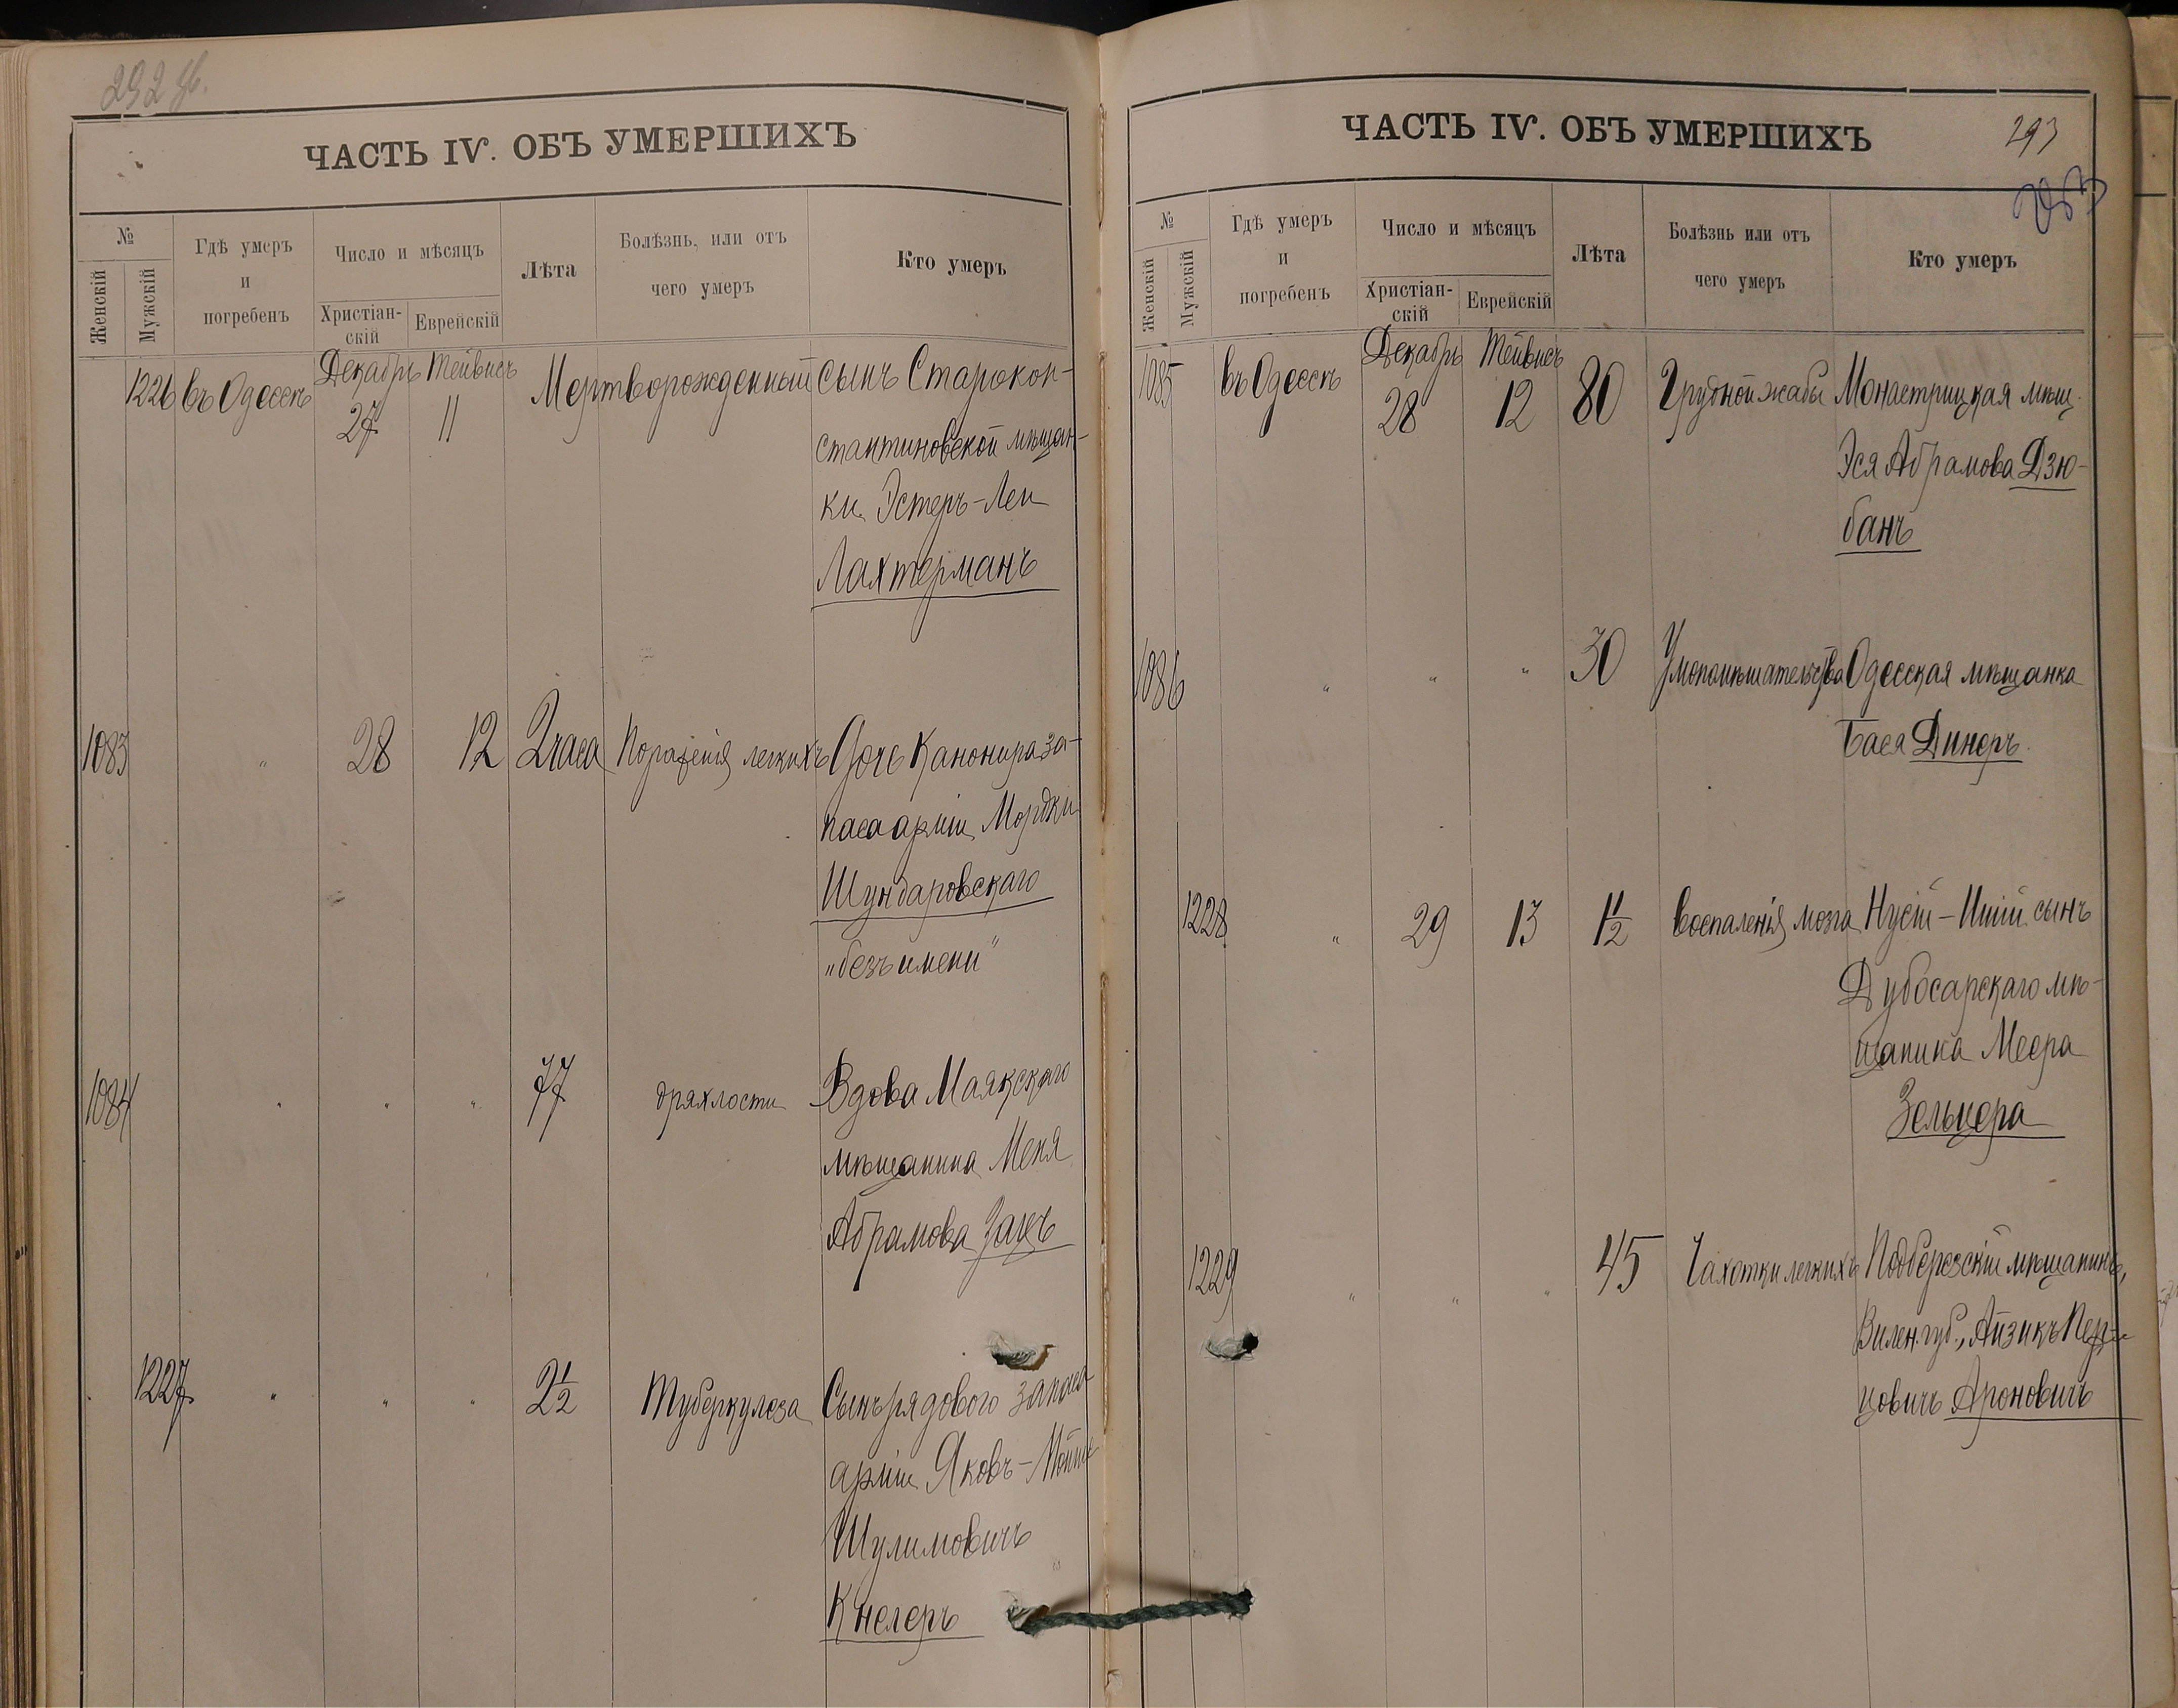 292 об.
ЧАСТЬ IV. ОБЪ УМЕРШИХЪ
№
Женскій
Мужскій
Гдѣ умеръ
и
погребенъ
Число и мѣсяцъ
Христіан-
скій
Еврейскій
Лѣта
Болѣзнь, или отъ
чего умеръ
Кто умеръ
1226 въ Одессѣ Декабрь 27 Тейвисъ 11 Мертворожденный сынъ Старокон-
стантиновской мѣщан-
ки Эстеръ-Леи
Лахтерманъ
1083 " 28 12 2 часа Пораженія легкихъ Дочь Канонира за-
паса арміи Мордки
Шундаровскаго
"безъ имени"
1084 " " " 77 дряхлости Вдова Маякскаго
мѣщанина Меня
Абрамова Зацъ
1227 " " " 2 1/2 Туберкулеза Сынъ рядового запаса
арміи Яковъ-
Шулимовичъ
Кнегеръ
ЧАСТЬ IV. ОБЪ УМЕРШИХЪ
293
№
Женскій
Мужскій
Гдѣ умеръ
и
погребенъ
Число и мѣсяцъ
Христіан-
скій
Еврейскій
Лѣта
Болѣзнь или отъ
чего умеръ
Кто умеръ
1085 въ Одессѣ Декабрь 28 Тейвисъ 12 80 Грудной жабы Монастрицкая мѣщ.
Эся Абрамова Дзю-
банъ
1086 " " " 30 Умопомѣшательства Одесская мѣщанка
Бася Динеръ
1228 " 29 13 1 1/2 Воспаленія мозга сынъ
Дубосарскаго мѣ-
щанина Меера
Зельцера
1229 " " " 45 Чахотки легкихъ Подберезскій мѣщанинъ,
Вилен. губ., Айзикъ Пер-
цовичъ Ароновичъ